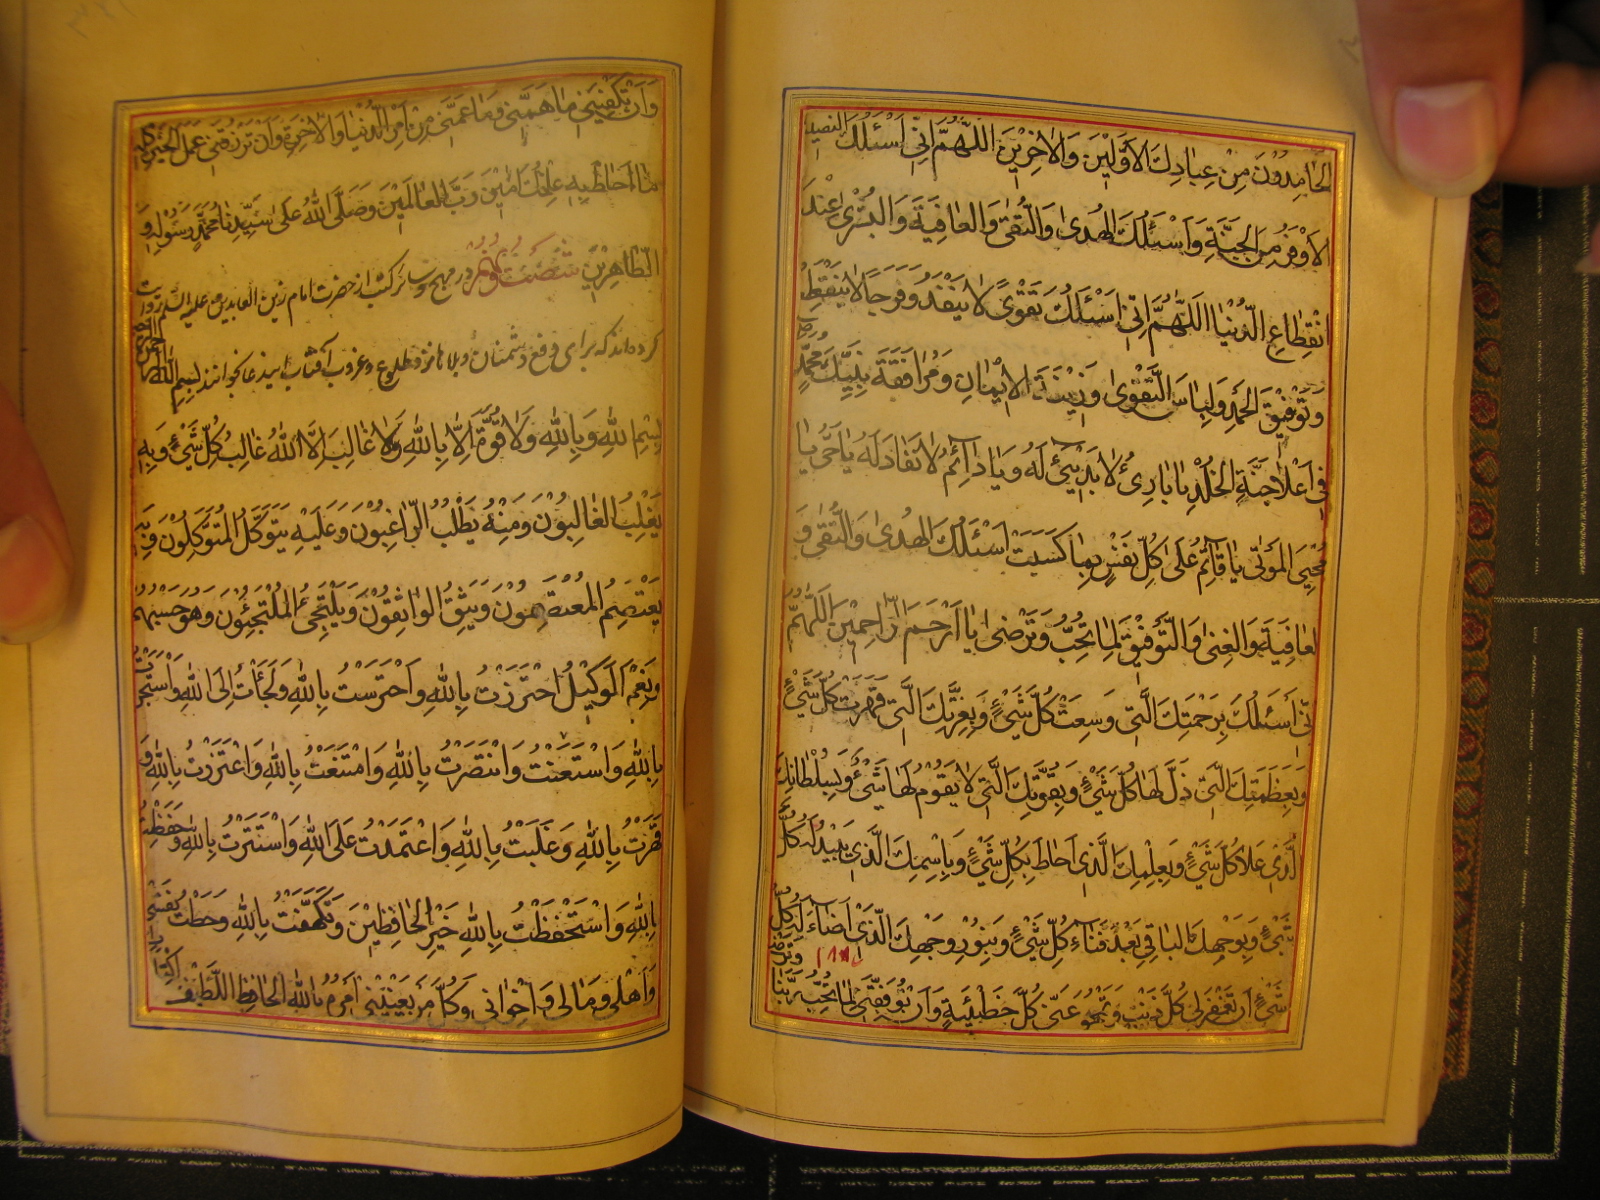 الحَامِدُونَ مِنْ عِبَادِكَ الاَوَّلِيْنَ وَالاٰخِرِيْنَ اللّٰهُمَّ اِنّي اَسْئَلُكَ النصيب
الاَوْفَرَ مِنَ الجَنَّةِ وَاَسْئَلُكَ الهُدىٰ وَالتُّقىٰ وَالعَافِيَةَ وَالبُشْرىٰ عِنْدَ
انْقِطَاعِ الدُّنْيَا اللّٰهُمَّ اِنّي اَسْئَلُكَ تَقْوىً لا يَنْفَدُ وَفَرَجًا لا يَنْقَطِعُ
وَتَوْفِيْقَ الحَمْدِ وَلِبَاسَ التَّقْوىٰ وَزِيْنَةَ الاِيْمَانِ وَمُرَافَقَةَ نَبِيِّكَ مُحَمَّدٍ
فِي اَعْلاٰ جَنَّةِ الخُلْدِ يَا بَارِئُ لا بَدِيْئَ لَهُ وَيَا دَائِمُ لا نَفَادَ لَهُ يَا حَيُّ يَا
مُحْيِيَ المَوْتٰى يَا قَائِمُ عَلىٰ كُلِّ نَفْسٍ بِمَا كَسَبَتْ اَسْئَلُكَ الهُدىٰ وَالتُّقىٰ وَ
العَافِيَةَ وَالغِنىٰ وَالتَّوْفِيْقَ لِمَا تُحِبُّ وَتَرْضىٰ يَا اَرْحَمَ الرَّاحِمِيْنَ اللّٰهُمَّ
اِنّي أَسْئَلُكَ بِرَحْمَتِكَ الَّتِي وَسِعَتْ كُلَّ شَيْءٍ وَبِعِزَّتِكَ الَّتِي قَهَرَتْ كُلَّ شَيْءٍ
وَبِعَظَمَتِكَ الَّتِي ذَلَّ لَهَا كُلُّ شَيْءٍ وَبِقُوَّتِكَ الَّتِي لا يَقُوْمُ لَهَا شَيْءٌ وَبِسُلْطَانِكَ
الَّذِي عَلاٰ كُلَّ شَيْءٍ وَبِعِلْمِكَ الَّذِي اَحَاطَ بِكُلِّ شَيْءٍ وَبِاِسْمِكَ الَّذِي يَبِيْدُ لَهُ كُلُّ
شَيْءٍ وَبِوَجْهِكَ البَاقِي بَعْدَ فَنَاءِ كُلِّ شَيْءٍ وَبِنُوْرِ وَجْهِكَ الَّذِي اَضَاءَ لَهُ كُلُّ
شَيْءٍ اَنْ تَغْفِرَ لِي كُلَّ ذَنْبٍ وَتَمْحُوَ عَنِّي كُلَّ خَطِيْئَةٍ وَاَنْ تُوَفِّقَنِي لِمَا تُحِبُّ رَبَّنَا وترضى
وَاَنْ تَكْفِيَنِي مَا هَمَّنِي وَمَا غَمَّنِي مِنْ اَمْرِ الدُّنْيَا وَالاٰخِرَةِ وَاَنْ تَرْزُقَنِي عَمَلَ الخَيْرِ كُلِّهِ
مَا اَحَاطَ بِهِ عِلْمُكَ اٰمِيْنَ رَبَّ العَالَمِيْنَ وَصَلَّى اللّٰهُ عَلىٰ سَيِّدِنَا مُحَمَّدٍ رَسُوْلِهِ وَ
الطَّاهِرِيْنَ شصت و نهم در مهج و سائر كتب از حضرت امام زين العابدين عليه السلم روايت
كرده‌اند كه براى دفع دشمنان و بلاها نزد طلوع و غروب آفتاب اين دعا بخوانند بِسْمِ اللّٰهِ الرحمن الرحيم
بِسْمِ اللّٰهِ وَبِاللّٰهِ وَلا قُوَّةَ اِلَّا بِاللّٰهِ وَلا غَالِبَ اِلَّا اللّٰهُ غَالِبُ كُلِّ شَيْءٍ وَبِهِ
يَغْلِبُ الغَالِبُوْنَ وَمِنْهُ يَطْلُبُ الرَّاغِبُوْنَ وَعَلَيْهِ يَتَوَكَّلُ المُتَوَكِّلُوْنَ وَبِهِ
يَعْتَصِمُ المُعْتَصِمُوْنَ وَيَثِقُ الوَاثِقُوْنَ وَيَلْتَجِئُ المُلْتَجِئُوْنَ وَهُوَ حَسْبُهُمْ
وَنِعْمَ الْوَكِيْلُ احْتَرَزْتُ بِاللّٰهِ وَاحْتَرَسْتُ بِاللّٰهِ وَلَجَأْتُ اِلَى اللّٰهِ وَاسْتَجَرْتُ
بِاللّٰهِ وَاسْتَعَنْتُ وَانْتَصَرْتُ بِاللّٰهِ وَامْتَنَعْتُ بِاللّٰهِ وَاعْتَزَزْتُ بِاللّٰهِ وَ
قَهَرْتُ بِاللّٰهِ وَغَلَبْتُ بِاللّٰهِ وَاعْتَمَدْتُ عَلَى اللّٰهِ وَاسْتَتَرْتُ بِاللّٰهِ وَحَفِظْتُ
بِاللّٰهِ وَاسْتَحْفَظْتُ بِاللّٰهِ خَيْرِ الحَافِظِيْنَ وَتَكَهَّفْتُ بِاللّٰهِ وَحُطْتُ نَفْسِي
وَاَهْلِي وَمَالِي وَاِخْوَانِي وَكُلَّ مَنْ يَعْنِيْنِي اَمْرُهُ بِاللّٰهِ الحَافِظِ اللَّطِيْفِ